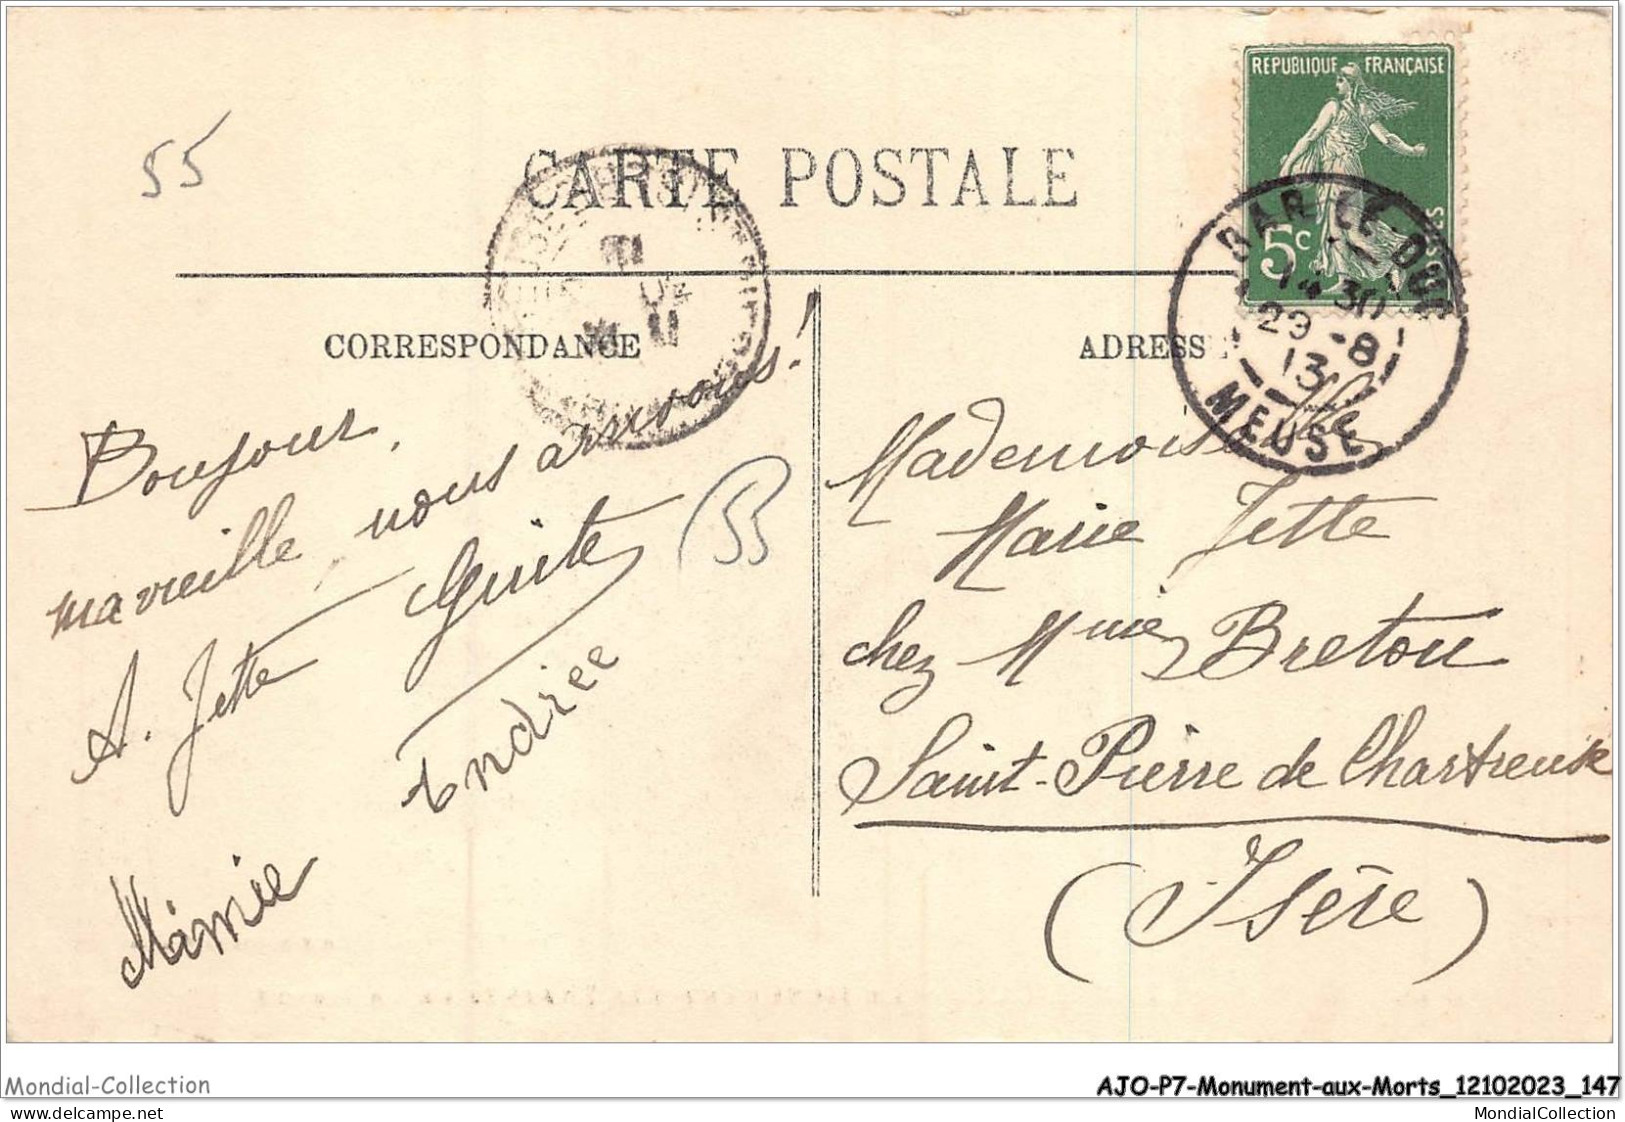 55
CARTE POSTALE
REPUBLIQUE FRANÇAISE
5c
BAR LE DUC
14 30
29 - 8
13
MEUSE
CORRESPONDANCE
ADRESSE
Boujour,
ma vieille, nous arrivons!
A. Jette Guite
Andrée
Mimie
55
Mademoiselle
Marie Jette
chez Mme Breton
Saint-Pierre de Chartreuse
(Isère)
Mondial-Collection
mondial-collection.delcampe.net
AJO-P7-Monument-aux-Morts_12102023_147
MondialCollection